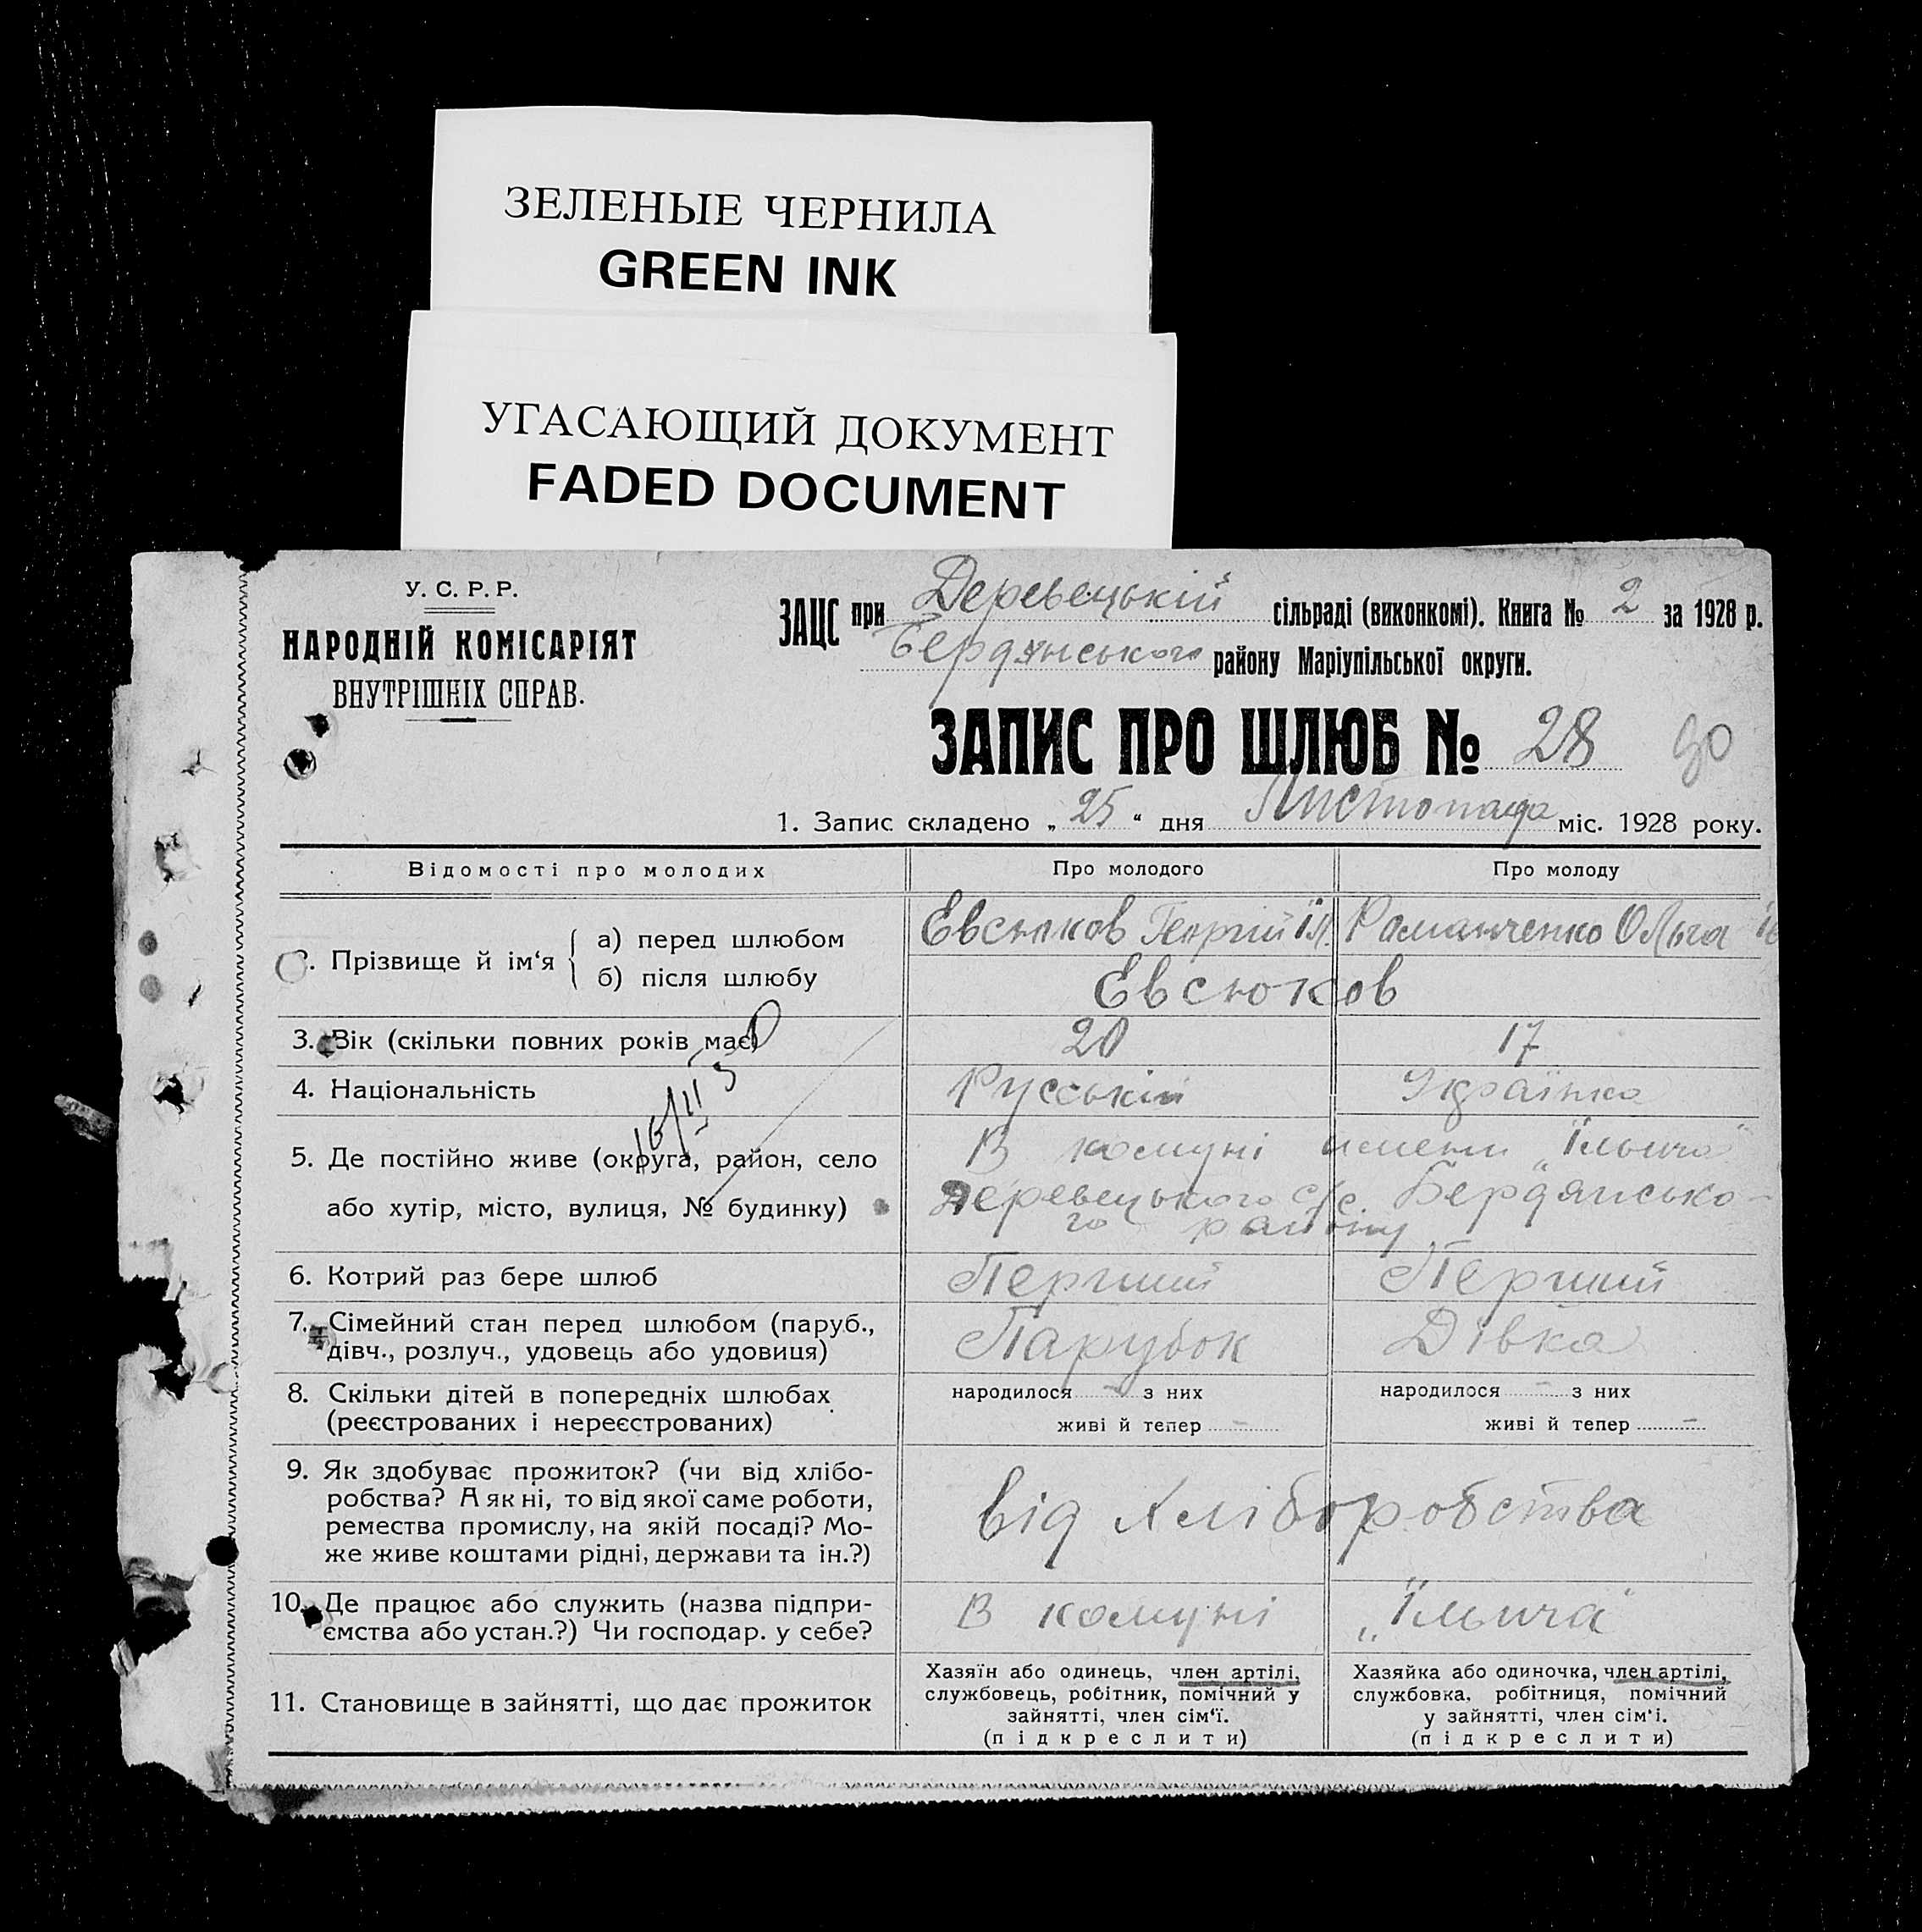 ЗЕЛЕНЫЕ ЧЕРНИЛА
GREEN INK
УГАСАЮЩИЙ ДОКУМЕНТ
FADED DOCUMENT
У. С. Р. Р.
НАРОДНІЙ КОМІСАРІЯТ
ВНУТРІШНІХ СПРАВ.
ЗАЦС при Деревецькій сільраді (виконкомі). Книга № 2 за 1928 р.
Бердянського району Маріупільської округи.
ЗАПИС ПРО ШЛЮБ № 28 90
1. Запис складено „25“ дня Листопада міс. 1928 року.
Відомості про молодих Про молодого Про молоду
2. Прізвище й ім‘я а) перед шлюбом Евсюков Георгій Іл. Романченко Ольга
б) після шлюбу Евсюков
3. Вік (скільки повних років має) 20 17
4. Національність Руський Українка
5. Де постійно живе (округа, район, село В комуні имени „Ільича“
або хутір, місто, вулиця, № будинку) Деревецького с/с. Бердянсько-
го району
6. Котрий раз бере шлюб Перший Перший
7. Сімейний стан перед шлюбом (паруб.,
дівч., розлуч., удовець або удовиця) Парубок Дівка
8. Скільки дітей в попередніх шлюбах народилося - з них народилося - з них
(реєстрованих і нереєстрованих) живі й тепер - живі й тепер -
9. Як здобуває прожиток? (чи від хлібо-
робства? А як ні, то від якої саме роботи,
ремества промислу, на якій посаді? Мо-
же живе коштами рідні, держави та ін.?)
від хліборобства
10. Де працює або служить (назва підпри-
ємства або устан.?) Чи господар. у себе?
В комуні „Ільича“
11. Становище в зайнятті, що дає прожиток
Хазяїн або одинець, член артілі,
службовець, робітник, помічний у
зайнятті, член сім‘ї.
(підкреслити)
Хазяйка або одиночка, член артілі,
службовка, робітниця, помічний
у зайнятті, член сім‘і.
(підкреслити)